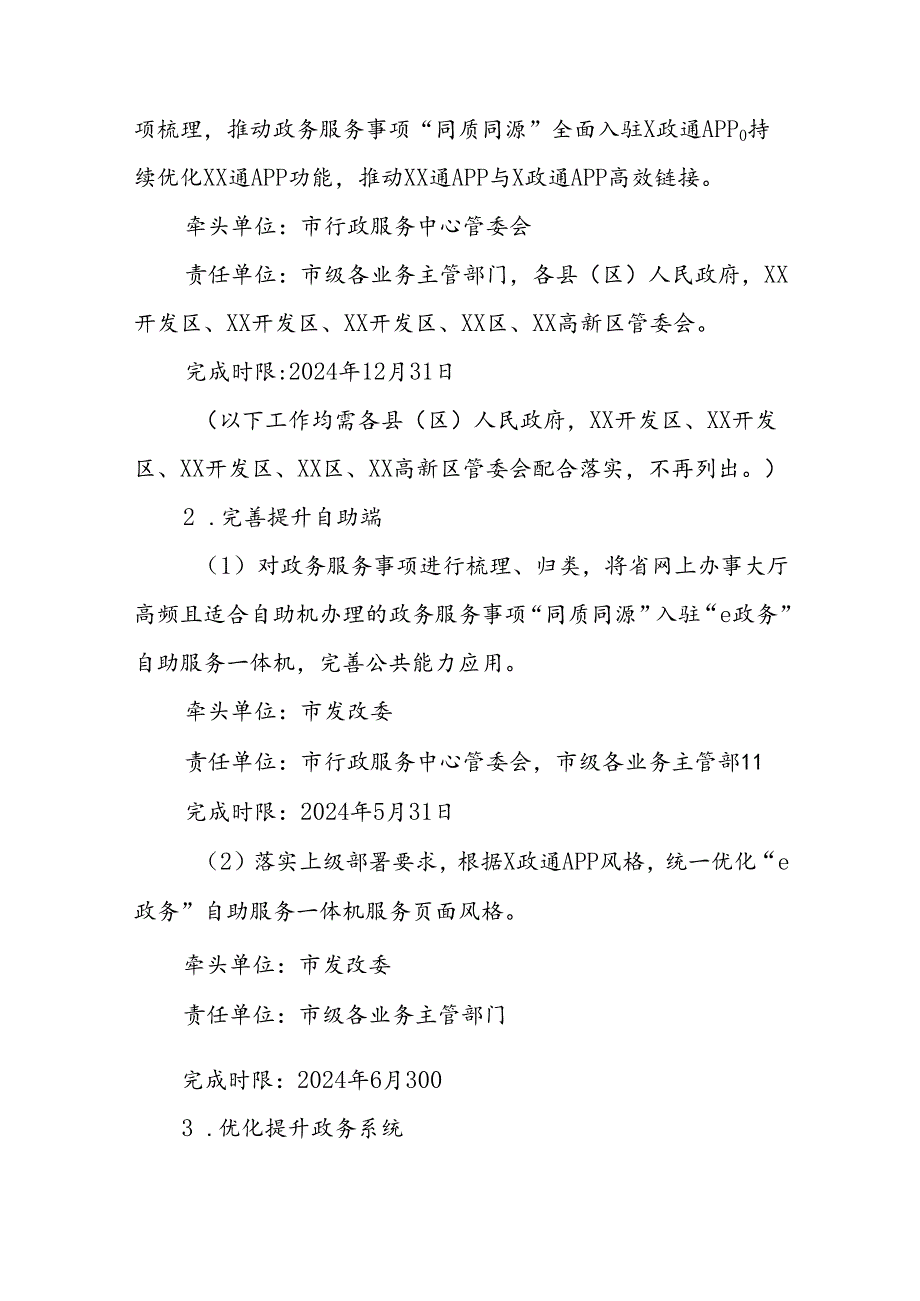 项梳理，推动政务服务事项“同质同源”全面入驻X政通APP₀持
续优化XX通APP功能，推动XX通APP与X政通APP高效链接。
牵头单位：市行政服务中心管委会
责任单位：市级各业务主管部门，各县（区）人民政府，XX
开发区、XX开发区、XX开发区、XX区、XX高新区管委会。
完成时限:2024年12月31日
（以下工作均需各县（区）人民政府，XX开发区、XX开发
区、XX开发区、XX区、XX高新区管委会配合落实，不再列出。）
2 .完善提升自助端
（1）对政务服务事项进行梳理、归类，将省网上办事大厅
高频且适合自助机办理的政务服务事项“同质同源”入驻“e政务”
自助服务一体机，完善公共能力应用。
牵头单位：市发改委
责任单位：市行政服务中心管委会，市级各业务主管部11
完成时限：2024年5月31日
（2）落实上级部署要求，根据X政通APP风格，统一优化“e
政务”自助服务一体机服务页面风格。
牵头单位：市发改委
责任单位：市级各业务主管部门
完成时限：2024年6月300
3 .优化提升政务系统